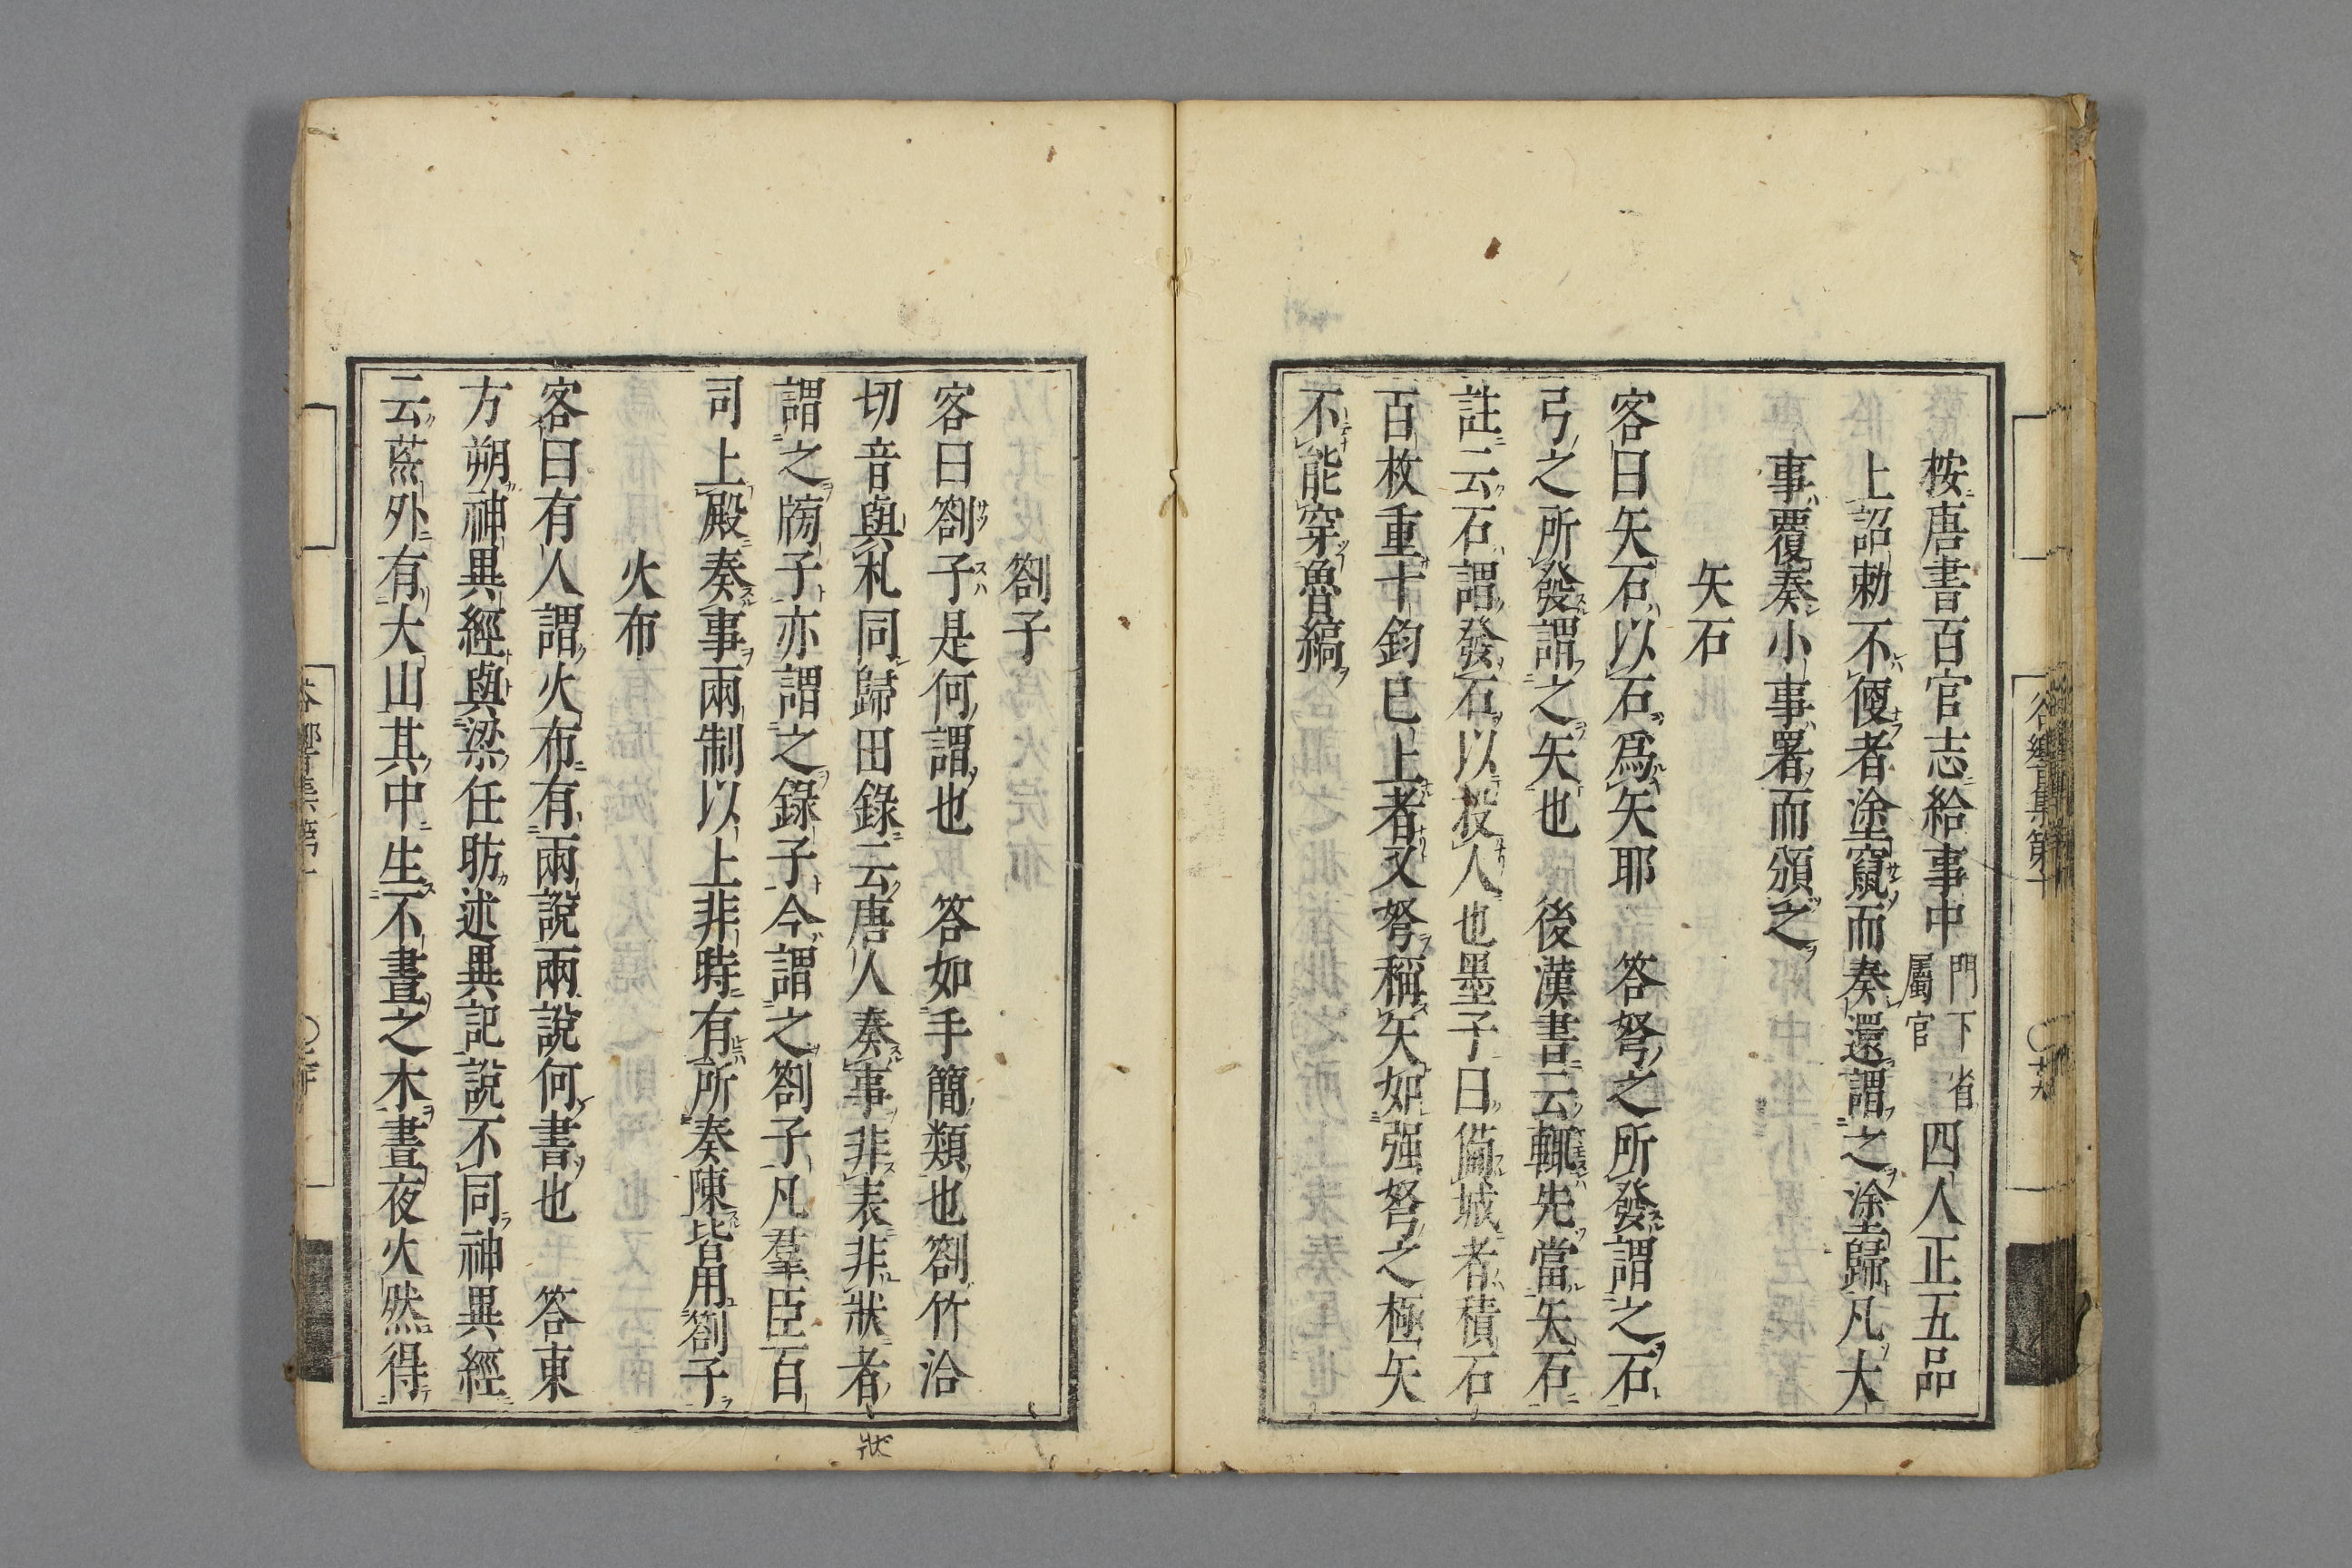 按唐書百官志給事中門下省屬官四人正五品
上詔勅不便者塗竄而奏還謂之塗歸凡大
事覆奏小事署而頒之
矢石
客曰矢石以石爲矢耶 答弩之所發謂之石
弓之所發謂之矢也 後漢書云輒先當矢石
註云石謂發石以投人也墨子曰備城者積石
百枚重十鈞已上者又弩稱矢如强弩之極矢
不能穿魯縞
劄子
客曰劄子是何謂也 答如手簡類也劄竹洽
切音與札同歸田錄云唐人奏事非表非狀者
謂之牓子亦謂之錄子今謂之劄子凡羣臣百
司上殿奏事兩制以上非時有所奏陳皆用劄子
火布
客曰有人謂火布有兩說兩說何書也 答東
方朔神異經與梁任昉述異記說不同神異經
云荒外有大山其中生不晝之木晝夜火然得
狀
谷響集第十
〇十九
谷響集第十